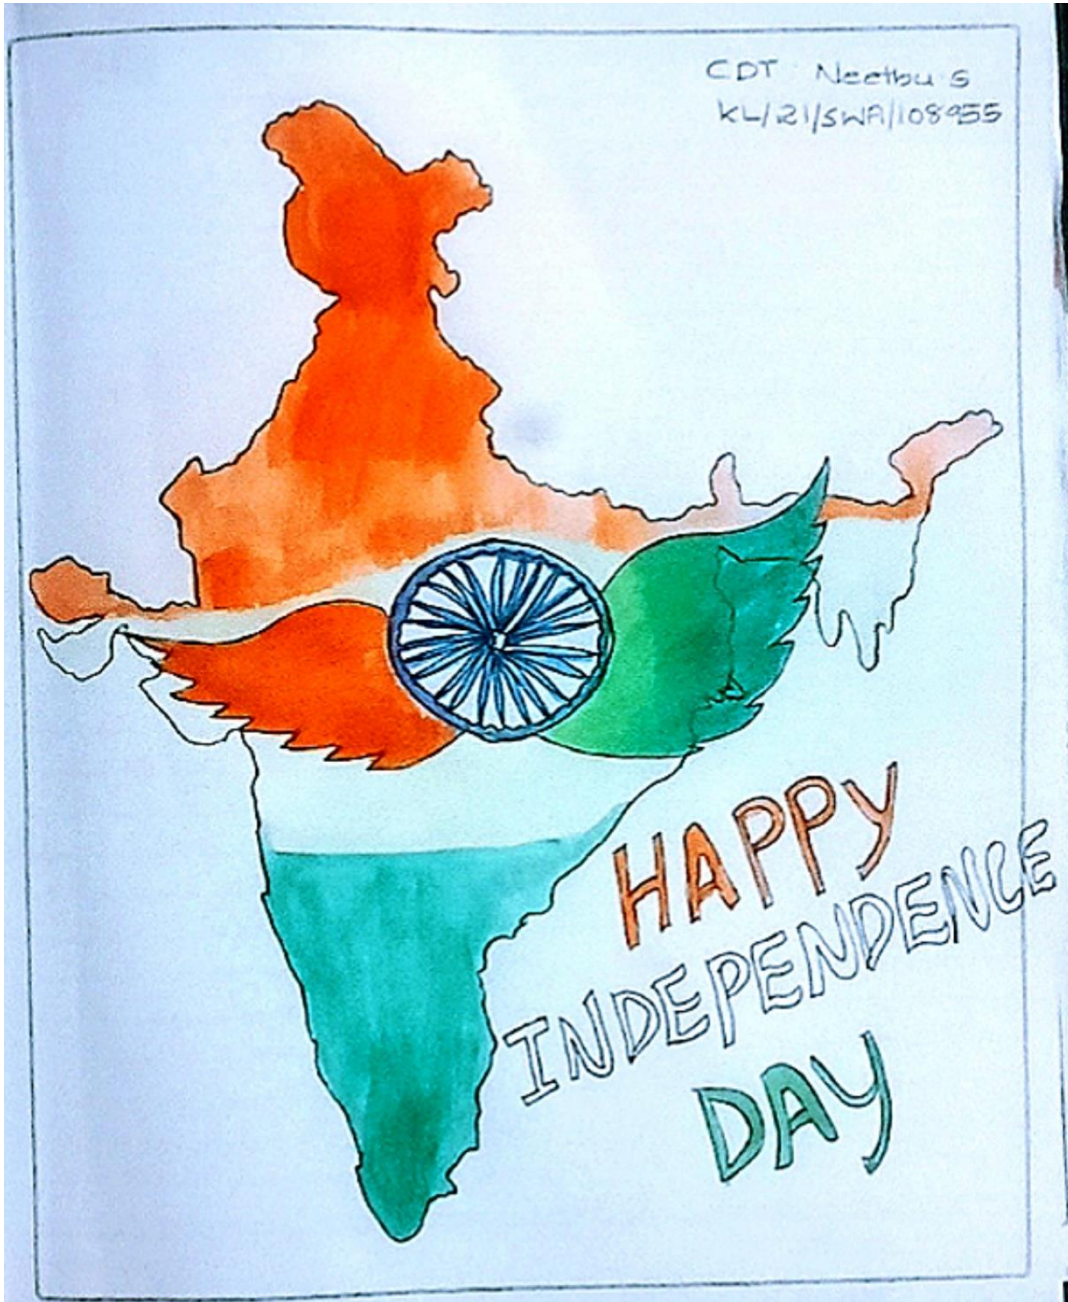 CDT Neethu S
KL/21/SWA/108955
HAPPY
INDEPENDENCE
DAY